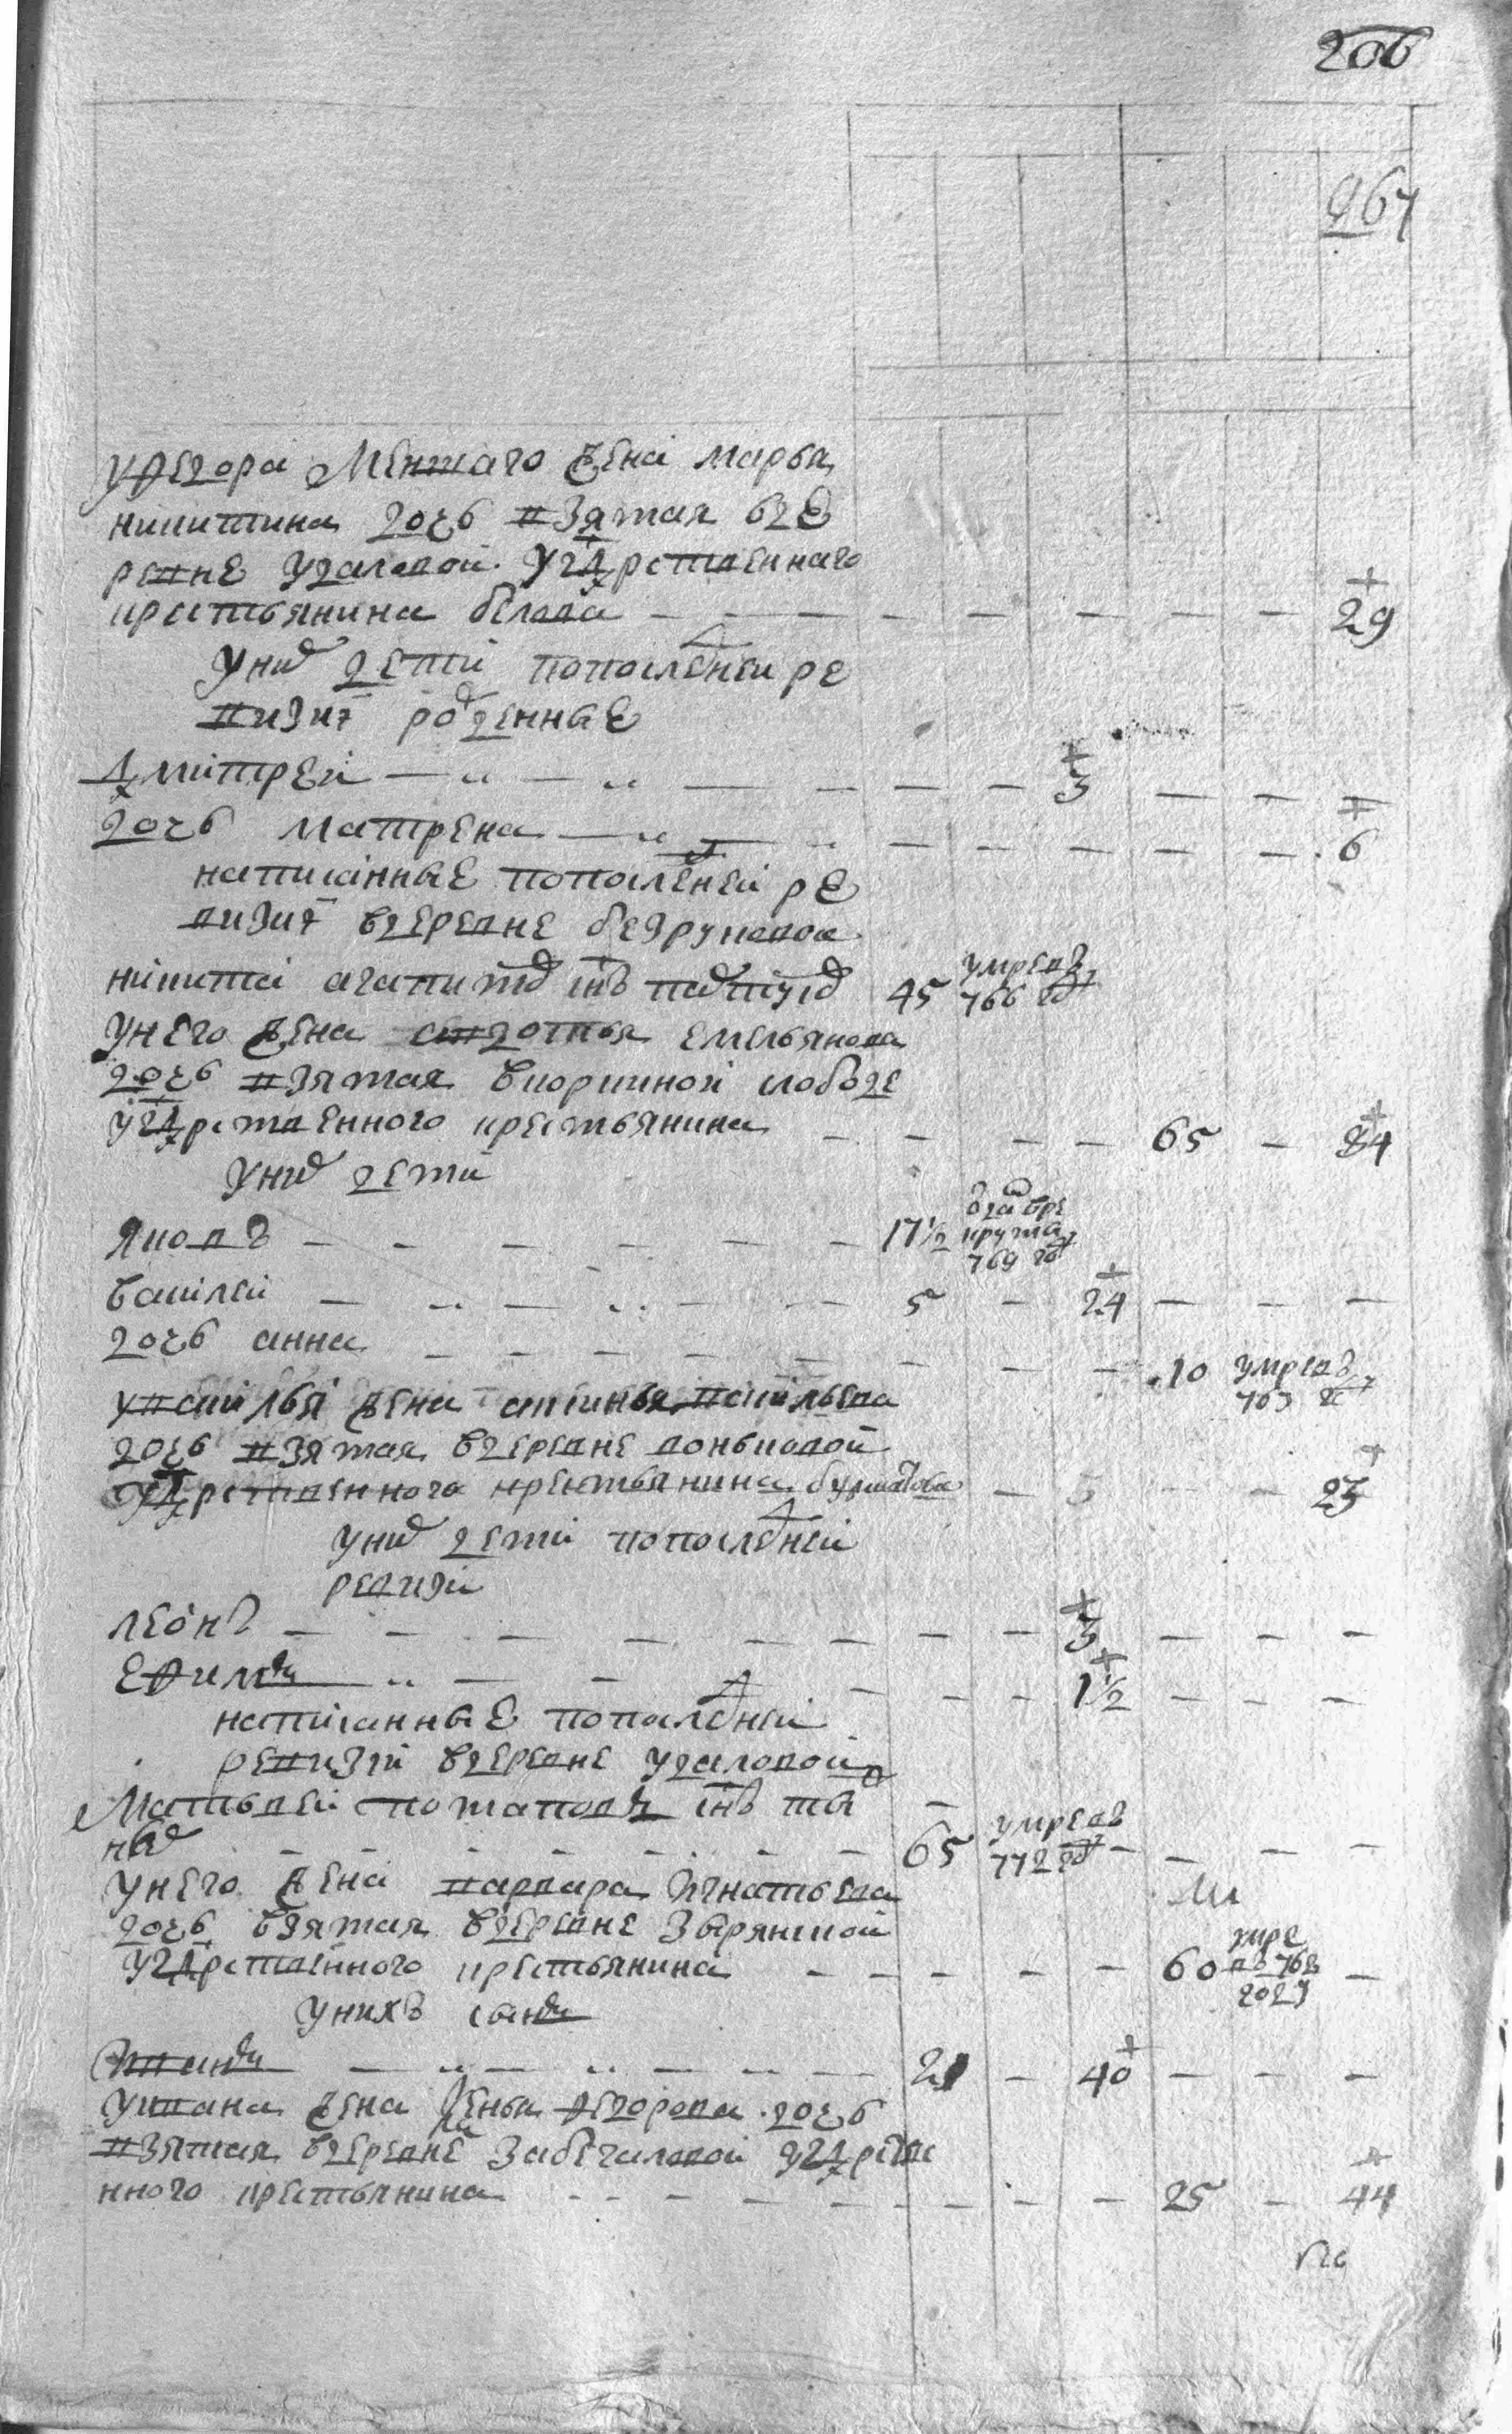 206
967
уфедора меншаго жена марья
никитина дочь взятая вде
ревне удаловой у гдрственнаго
крестьянина белова — — — — — — — 29
у них детей попоследнеи ре
визиї рожденные
дмитрей — — — — — — 3 — — —
дочь матрена — — — — — — — 6
написанные попоследней ре
визиї вдеревне безруковой
никита агапитов снъ пастухов 45 умре въ 766 год
унего жена емельянова
дочь взятая вкоркиной слободе
у гдрственного крестьянина — — — — 65 — 84
у них дети
яковъ — — — — — — 17½ отдан вре круты 769 год
василей — — — — — 5 — 24 — — —
дочь анна — — — — — — — — 10 умре въ 763 го
у василья жена васильева
дочь взятая вдеревне коньковой
у гдрственного крестьянина бурматова — — — 23
у них дети попоследней
ревизии
леонъ — — — — — — — — 3 — — —
ефимъ — — — — — — 1½ — — —
написанные попоследней
ревизии вдеревне удаловой
матвей потаповъ снъ ты
нов — — — — — 65 умре въ 772 год — — — —
унего жена варвара игнатьева
дочь взятая вдеревне зырянской
у гдрственного крестьянина — — — — — 60 умре въ 762 году —
унихъ сынъ
иванъ — — — — — 21 — 40 — — —
у ивана жена федорова дочь
взятая вдеревне забегаловой у гдрстве
нного крестьянина — — — — — — — 25 — 44